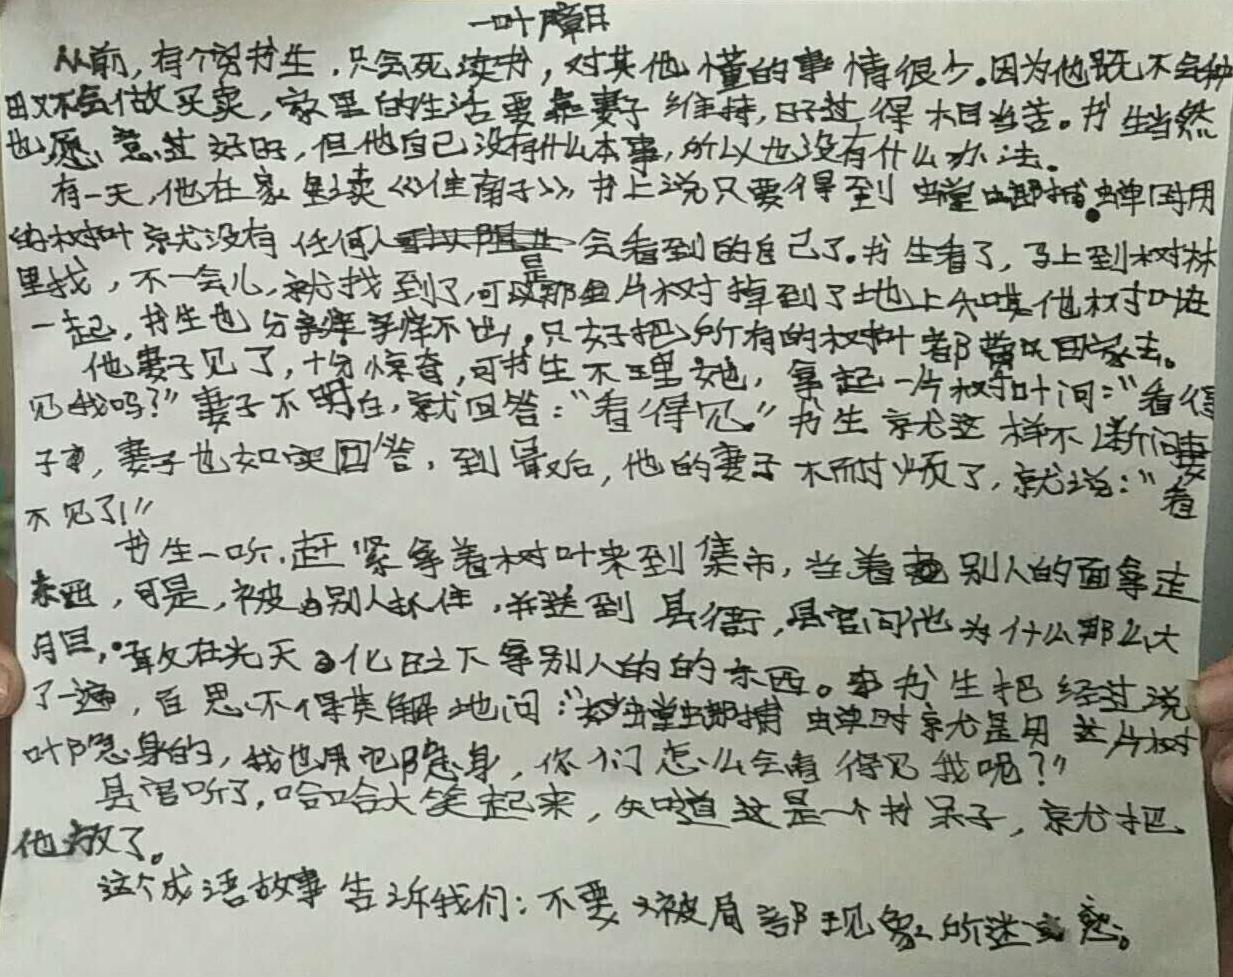 一叶障目
从前,有个穷书生,只会死读书,对其他懂的事情很少。因为他既不会种
田又不会做买卖,家里的生活要靠妻子维持,日子过得相当苦。书生当然
也愿意过好日,但他自己没有什么本事,所以也没有什么办法。
有一天,他在家里读《淮南子》,书上说只要得到螳螂捕蝉时用
的树叶就没有任何人会看到的自己了。书生看了,马上到树林
里找,不一会儿,就找到了,可是那片树掉到了地上和其他树叶在
一起,书生也分辨不出,只好把所有的树叶都带回家去。
他妻子见了,十分惊奇,可书生不理她,拿起一片树叶问:“看得
见我吗?”妻子不明白,就回答:“看得见。”书生就这样不断问妻
子,妻子也如实回答,到最后,他的妻子不耐烦了,就说:“看
不见了!”
书生一听,赶紧拿着树叶来到集市,当着别人的面拿走
东西,可是,被别人抓住,并送到县衙,县官问他为什么那么大
胆,敢在光天化日之下拿别人的的东西。书生把经过说
了一遍,百思不得其解地问:“螳螂捕蝉时就是用这片树
叶隐身的,我也用它隐身,你们怎么会看得见我呢?”
县官听了,哈哈大笑起来,知道这是一个书呆子,就把
他放了。
这个成语故事告诉我们:不要被局部现象所迷惑。